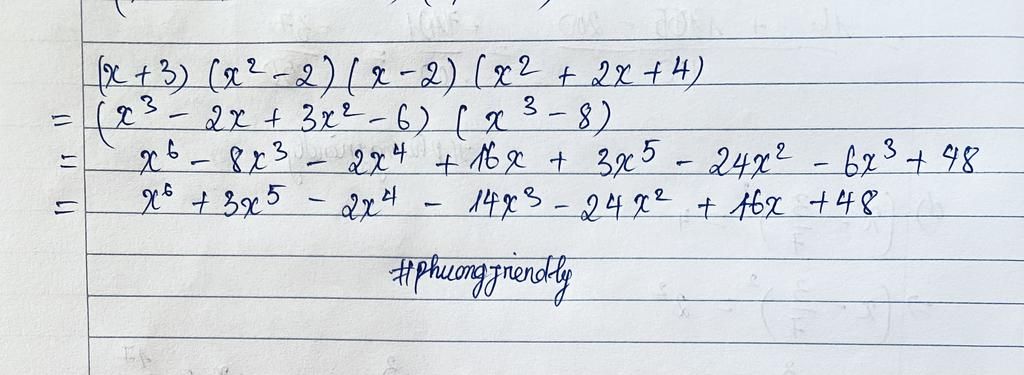 (x + 3) (x² - 2) (x - 2) (x² + 2x + 4)
= (x³ - 2x + 3x² - 6) (x³ - 8)
= x⁶ - 8x³ - 2x⁴ + 16x + 3x⁵ - 24x² - 6x³ + 48
= x⁶ + 3x⁵ - 2x⁴ - 14x³ - 24x² + 16x + 48
#phuongfriendly